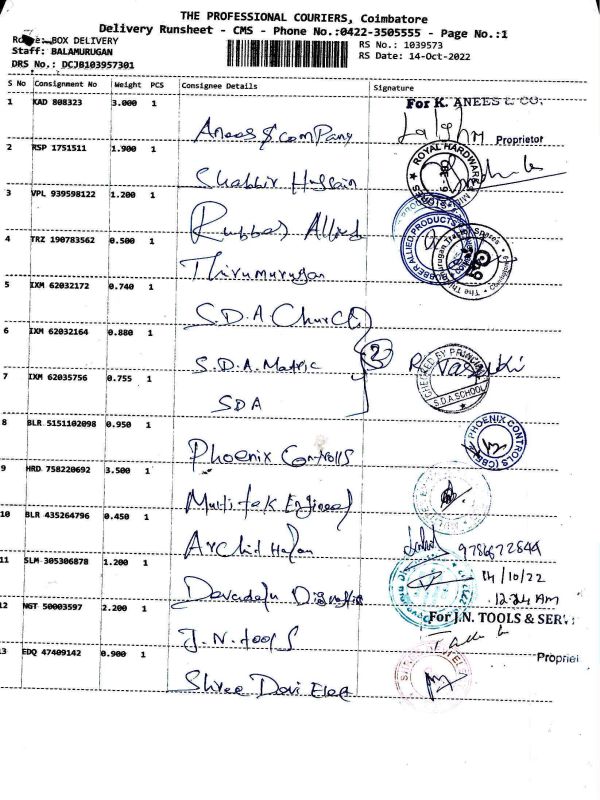 THE PROFESSIONAL COURIERS, Coimbatore
Delivery Runsheet - CMS - Phone No.:0422-3505555 - Page No.:1
BOX DELIVERY RS No.: 1039573
Staff: BALAMURUGAN RS Date: 14-Oct-2022
DRS No.: DCJB103957301
S No Consignment No Weight PCS Consignee Details Signature
For K. ANEES & CO.
1 KAD 808323 3.000 1 Anees & Company
Proprietor
2 RSP 1751511 1.900 1 Shabbir Hussain
ROYAL HARDWARE
3 VPL 939598122 1.200 1 Rubbar Allied
RUBBER ALLIED PRODUCTS
4 TRZ 190783562 0.500 1 Thirumurugan
5 IXM 62032172 0.740 1 S.D.A Church
6 IXM 62032164 0.880 1 S.D.A. Matric
3
CHECKED BY PRINCIPAL
S.D.A SCHOOL
7 IXM 62035756 0.755 1 SDA
8 BLR 5151102098 0.950 1 Phoenix Controlls
PHOENIX CONTROLS (CBE)
9 HRD 758220692 3.500 1 Multitek Engineer
10 BLR 435264796 0.450 1
9786672844
11 SLM 305306878 1.200 1
14/10/22
12.24 AM
12 NGT 50003597 2.200 1 J.N. tools
For J.N. TOOLS & SERV
Propriet
13 EDQ 47409142 0.900 1 Shree Devi Elee